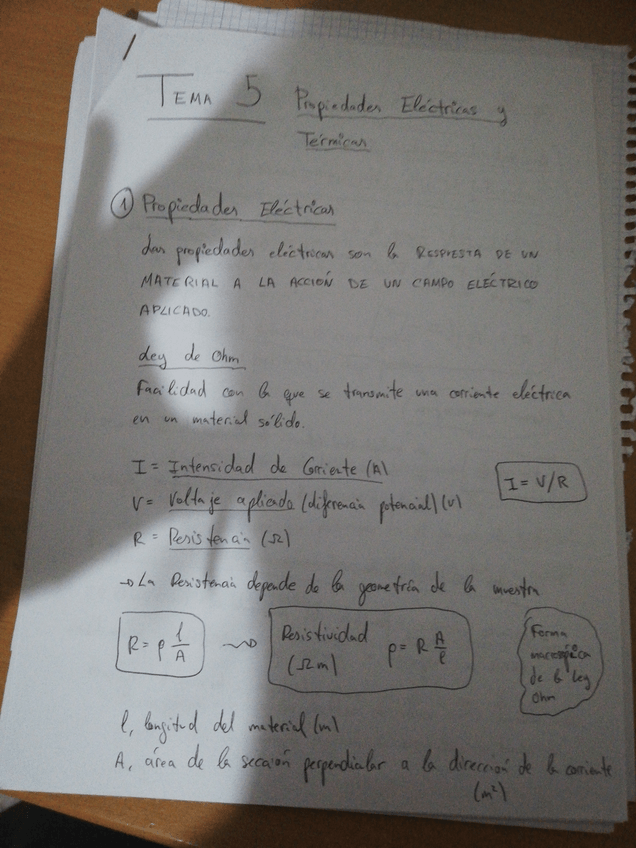 TEMA 5 Propiedades Eléctricas y
Térmicas
1 Propiedades Eléctricas
Las propiedades eléctricas son la RESPUESTA DE UN
MATERIAL A LA ACCIÓN DE UN CAMPO ELÉCTRICO
APLICADO.
Ley de Ohm
Facilidad con la que se transmite una corriente eléctrica
en un material sólido.
I = Intensidad de Corriente (A)
I = V/R
V = Voltaje aplicado (diferencia potencial) (V)
R = Resistencia (Ω)
→ La Resistencia depende de la geometría de la muestra
R = ρ l/A
Resistividad
(Ωm) ρ = R A/l
Forma
macroscópica
de la Ley
Ohm
l, longitud del material (m)
A, área de la sección perpendicular a la dirección de la corriente
(m²)